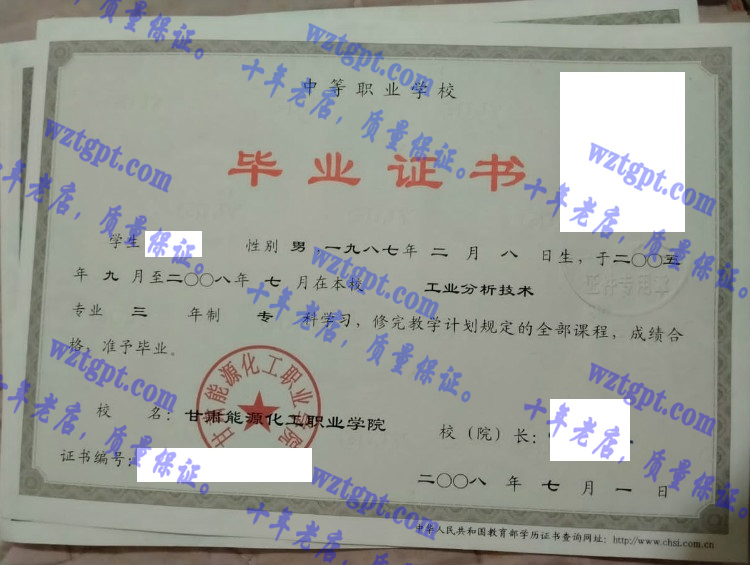 中等职业学校
毕业证书
学生 性别 男，一九八七年 二 月 八 日生，于二〇〇五
年 九 月至二〇〇八年 七 月在本校 工业分析技术
专业 三 年制 专 科学习，修完教学计划规定的全部课程，成绩合
格，准予毕业。
校 名：甘肃能源化工职业学院
校（院）长：
证书编号：
二〇〇八 年 七 月 一 日
中华人民共和国教育部学历证书查询网址：http://www.chsi.com.cn
甘肃能源化工职业学院
证件专用章
wztgpt.com
十年老店，质量保证。